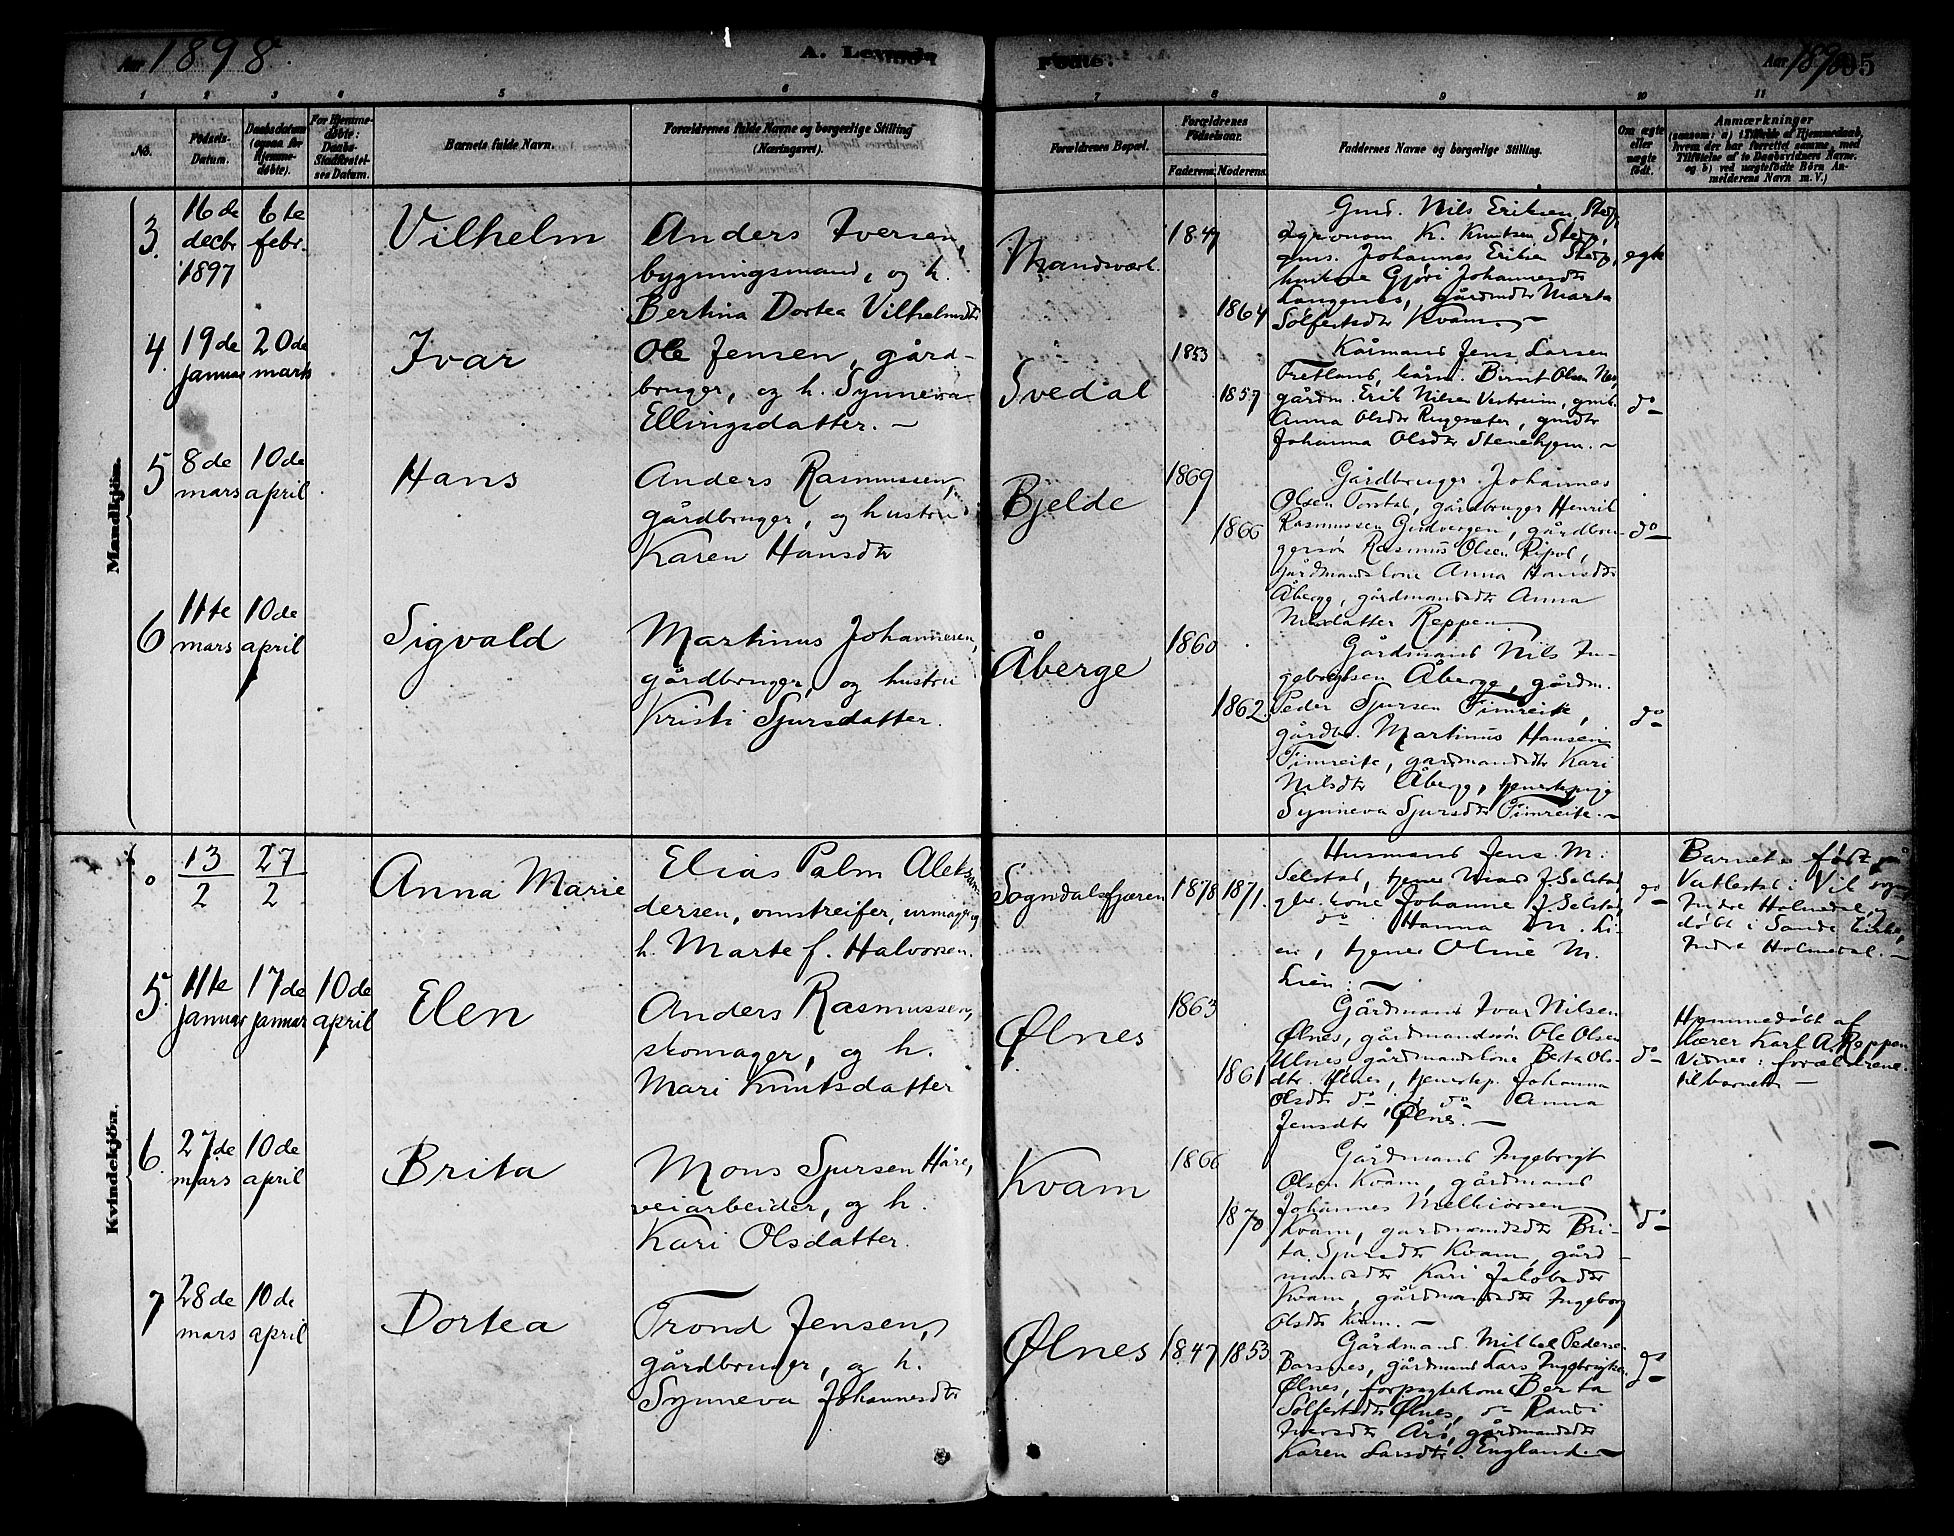 Aar 1898.
A. Levende
Fødte.
Aar 1898
95
1 2 3 4 5 6 7 8 9 10 11
No.
Fødsels-
Datum.
Daabsdatum
(ogsaa for
Hjemme-
døbte).
For Hjemme-
døbte:
Daabs-
Stadfæstel-
ses Datum.
Barnets fulde Navn.
Forældrenes fulde Navne og borgerlige Stilling
(Næringsvei).
Forældrenes Bopæl.
Forældrenes
Fødselsaar.
Faderens. Moderens.
Faddernes Navne og borgerlige Stilling.
Om ægte
eller
uægte
født.
Anmærkninger
(saasom: a) i Tilfælde af Hjemmedaab,
hvem der har forrettet samme, med
Tilføielse af to Daabsvidners Navne.
og b) ved uægtefødte Børn An-
melderens Navn m. V.)
Mandkjøn.
3.
16de
decbr
1897
6te
febr.
Vilhelm
Anders Iversen,
bygningsmand, og h.
Bertina Dortea Vilhelmsdtr
Mandsværk.
1847
1864
Gmd. Nils Eriksen, Stedje,
agronom K. Knutsen Stedje,
gms. Johannes Eriksen Stedje,
Gjøri Johannesdtr
Langenes, gårdmdtr Marta
Solfestsdtr Kvam. –
egte
4.
19de
januar
20de
marts
Ivar
Ole Jensen, gård-
bruger, og h. Synneva
Ellingsdatter. –
Svedal
1853
1857
Kårmand Jens Larsen
Fretland, kårm. Bernt Olsen Nes,
gårdm. Erik Nilsen Vestreim, gmk.
Anna Olsdtr Rugesæter, gmdtr
Johanna Olsdtr Stenehjem. –
do
5
8de
mars
10de
april
Hans
Anders Rasmussen,
gårdbruger, og hustru
Karen Hansdtr
Bjelde
1869
1866
Gårdbruger Johannes
Olsen Torstad, gårdbruger Henrik
Rasmussen Gudvangen, gårdbru-
gersøn Rasmus Olsen Ripol,
gårdmandskone Anna Hansdtr
Åberge, gårdmandsdtr Anna
Nilsdatter Reppen.
do
6
11te
mars
10de
april
Sigvald
Martinus Johannesen,
gårdbruger, og hustru
Kristi Sjursdatter.
Åberge
1860
1862.
Gårdmand Nils In-
gebrigtsen Åberge, gårdm.
Peder Sjursen Timreite,
gårdbr. Martinus Hansen
Timreite, gardmandsdtr Kari
Nilsdtr Åberge, tjenestepige
Synneva Sjursdtr Timreite. –
do
Kvindekjøn.
o
13/2
27/2
Anna Marie
Elias Palm Aleksan-
dersen, omstreifer, urmager og
h. Marte f. Halvorsen.
Sogndalsfjæren
1878
1871.
Husmand Jens M.
Selstad, tjener Mads J. Selstad,
gbr. kone Johanne J. Selstad,
do Hanna M. Li-
en, tjener Oline M.
Lien. –
do
Barnet er født på
Vallestad i Vik sogn,
Indre Holmedal, og
døbt i Sande kirke,
Indre Holmedal. –
5.
11te
januar
17de
januar
10de
april
Elen
Anders Rasmussen,
skomager, og h.
Mari Knutsdatter
Ølnes
1863
1861
Gårdmand Ivar Nilsen
Ølnes, gårdmandssøn Ole Olsen
Ølnes, gårdmandskone Berta Ols-
dtr. Ølnes, tjenestep. Johanna
Olsdtr do, do Anna
Jensdtr Ølnes. –
do
Hjemmedøbt af
lærer Karl A. Reppen
Vidner: forældrene
til barnet –
6.
27de
mars
10de
april
Brita
Mons Sjursen Håre,
veiarbeider, og h.
Kari Olsdatter.
Kvam
1866
1870
Gårdmand Ingebrigt
Olsen Kvam, gårdmand
Johannes Melkiorsen
Kvam, gardmandsdtr Bri-
ta Sjursdtr Kvam, gård-
mandsdtr Kari Jakobsdtr
Kvam, gårdmandsdtr Ingeborg
Olsdtr Kvam. –
do
7
28de
mars
10de
april
Dortea
Trond Jensen,
gårdbruger, og h.
Synneva Johannesdtr
Ølnes
1847
1853
Gårdmand Mikkel Pedersen
Barsnes, gårdmand Lars Ingebrigtsen
Ølnes, forpagterkone Berta
Solfestsdtr Ølnes, do Randi
Iversdtr Årø, gårdmandsdtr
Karen Larsdtr England. –
do